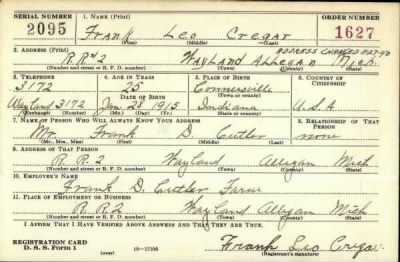 SERIAL NUMBER 1. NAME (Print) ORDER NUMBER
2095 Frank Leo Cregar 1627
(First) (Middle) (Last)
2. ADDRESS (Print) ADDRESS CHANGED
R.R.#2 Wayland Allegan Mich.
(Number and street or R. F. D. number) (Town) (County) (State)
3. TELEPHONE 4. AGE IN YEARS 5. PLACE OF BIRTH 6. COUNTRY OF CITIZENSHIP
3172 25 Connersville
DATE OF BIRTH (Town or county)
Wayland 3172 Jan. 28 1915 Indiana U.S.A
(Exchange) (Number) (Mo.) (Day) (Yr.) (State or country)
7. NAME OF PERSON WHO WILL ALWAYS KNOW YOUR ADDRESS 8. RELATIONSHIP OF THAT PERSON
Mr. Frank D. Cutler none
(Mr., Mrs., Miss) (First) (Middle) (Last)
9. ADDRESS OF THAT PERSON
R.R.2 Wayland Allegan Mich
(Number and street or R. F. D. number) (Town) (County) (State)
10. EMPLOYER'S NAME
Frank D. Cutler Farm
11. PLACE OF EMPLOYMENT OR BUSINESS
R.R.2 Wayland Allegan Mich
(Number and street or R. F. D. number) (Town) (County) (State)
I AFFIRM THAT I HAVE VERIFIED ABOVE ANSWERS AND THAT THEY ARE TRUE.
REGISTRATION CARD
D. S. S. Form 1 (over) 16—17105 Frank Leo Cregar
(Registrant's signature)